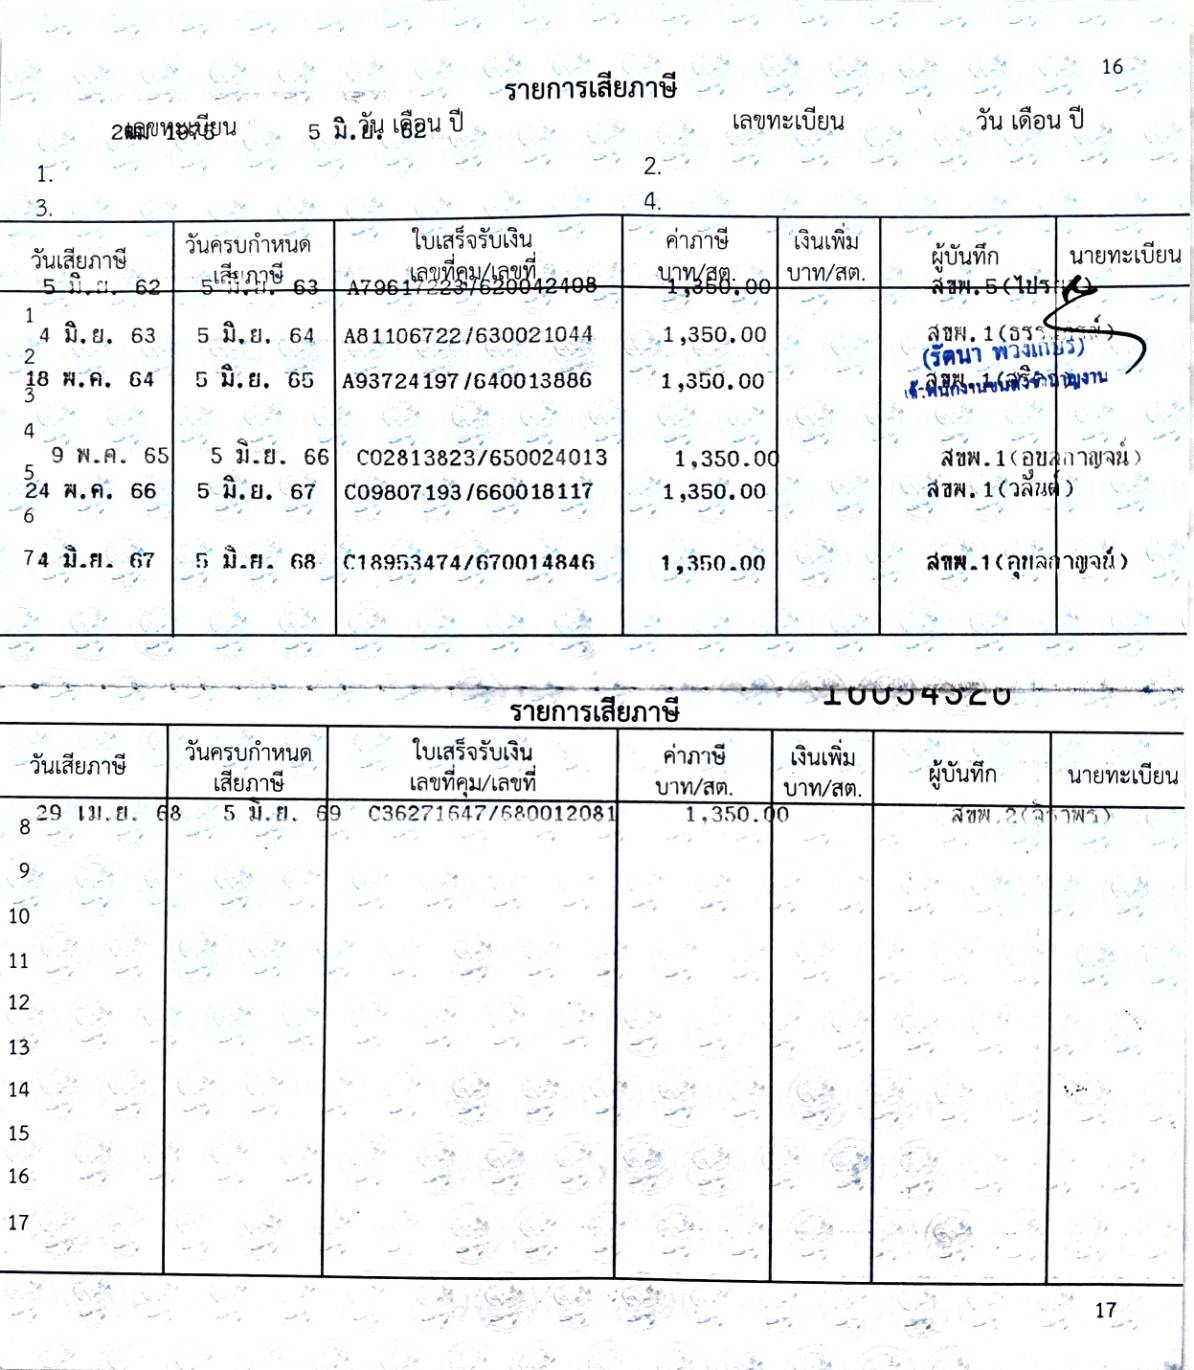 16
รายการเสียภาษี
เลขทะเบียน วัน เดือน ปี เลขทะเบียน วัน เดือน ปี
5 มิ.ย. 62
1. 2.
3. 4.
วันเสียภาษี วันครบกำหนด เสียภาษี ใบเสร็จรับเงิน เลขที่คุม/เลขที่ ค่าภาษี บาท/สต. เงินเพิ่ม บาท/สต. ผู้บันทึก นายทะเบียน
5 มิ.ย. 62 5 มิ.ย. 63 A79617223/620042408 1,350.00 สขพ.5
1
4 มิ.ย. 63 5 มิ.ย. 64 A81106722/630021044 1,350.00 สขพ.1
2
(รัตนา พวงเกษร)
18 พ.ค. 64 5 มิ.ย. 65 A93724197/640013886 1,350.00
เจ้าพนักงานขนส่งชำนาญงาน
3
4
9 พ.ค. 65 5 มิ.ย. 66 C02813823/650024013 1,350.00 สขพ.1(อุบลกาญจน์)
5
24 พ.ค. 66 5 มิ.ย. 67 C09807193/660018117 1,350.00 สขพ.1(วสันต์)
6
7 4 มิ.ย. 67 5 มิ.ย. 68 C18953474/670014846 1,350.00 สขพ.1(อุบลกาญจน์)
10054320
รายการเสียภาษี
วันเสียภาษี วันครบกำหนด เสียภาษี ใบเสร็จรับเงิน เลขที่คุม/เลขที่ ค่าภาษี บาท/สต. เงินเพิ่ม บาท/สต. ผู้บันทึก นายทะเบียน
8 29 เม.ย. 68 5 มิ.ย. 69 C36271647/680012081 1,350.00 สขพ.2(จิราพร)
9
10
11
12
13
14
15
16
17
17